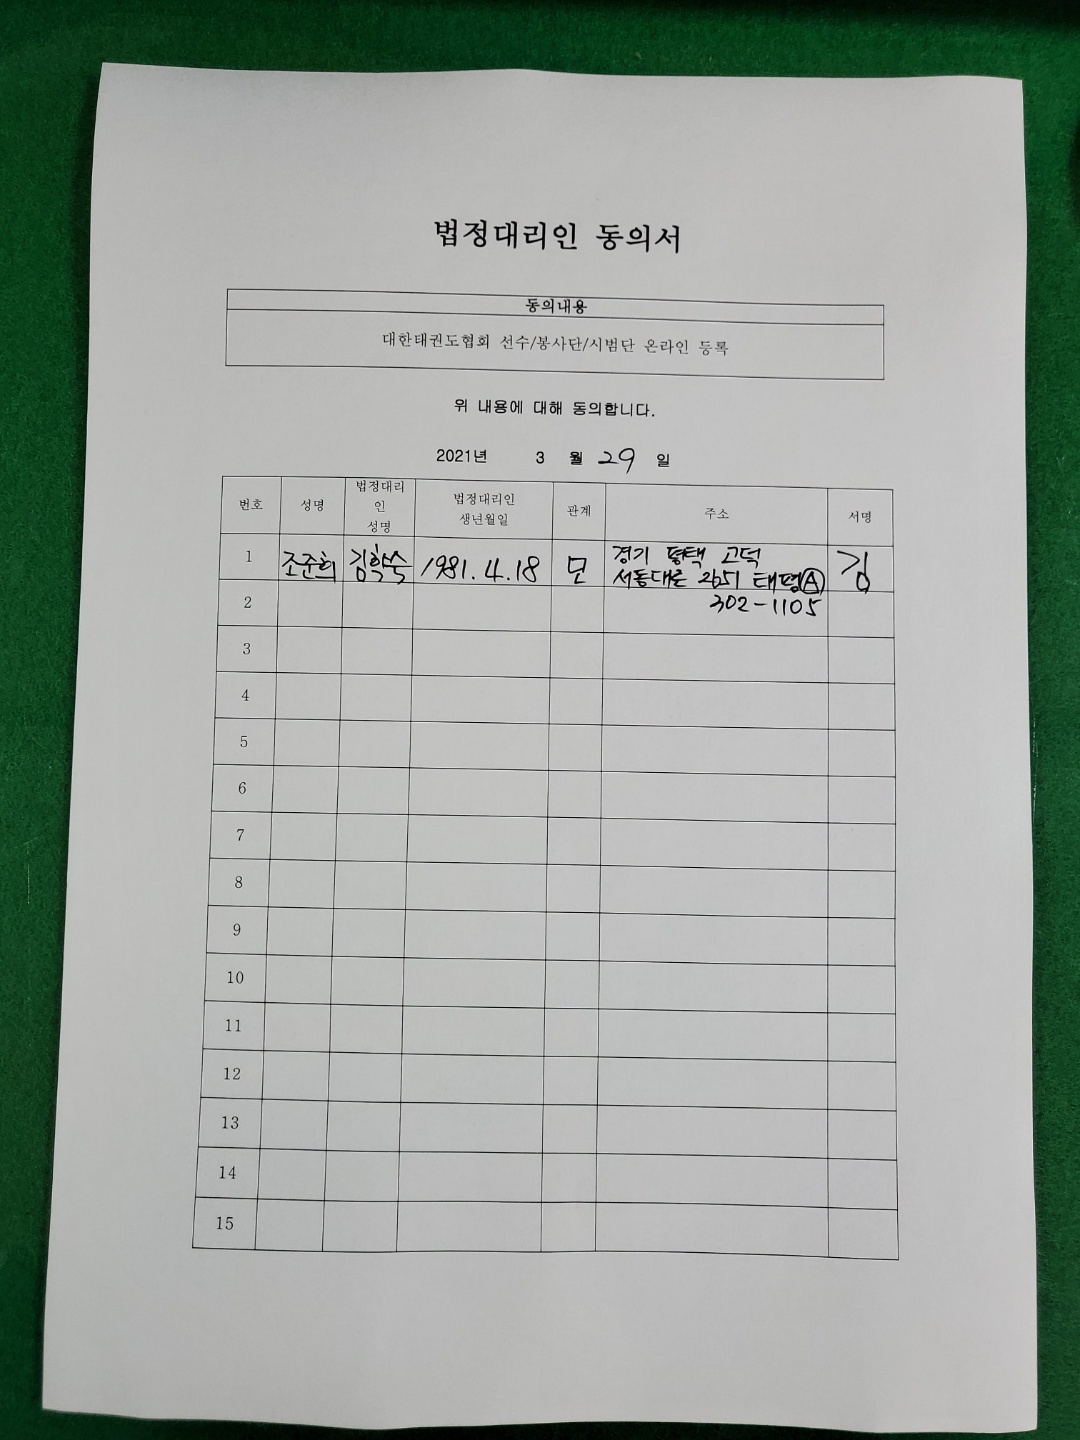 법정대리인 동의서
동의내용
대한태권도협회 선수/봉사단/시범단 온라인 등록
위 내용에 대해 동의합니다.
2021년 3 월 29 일
번호 성명 법정대리인 성명 법정대리인 생년월일 관계 주소 서명
1 조준희 김학숙 1981.4.18 모 경기 평택 고덕 김
서동대로 2651 태평Ⓐ
2 302-1105
3
4
5
6
7
8
9
10
11
12
13
14
15